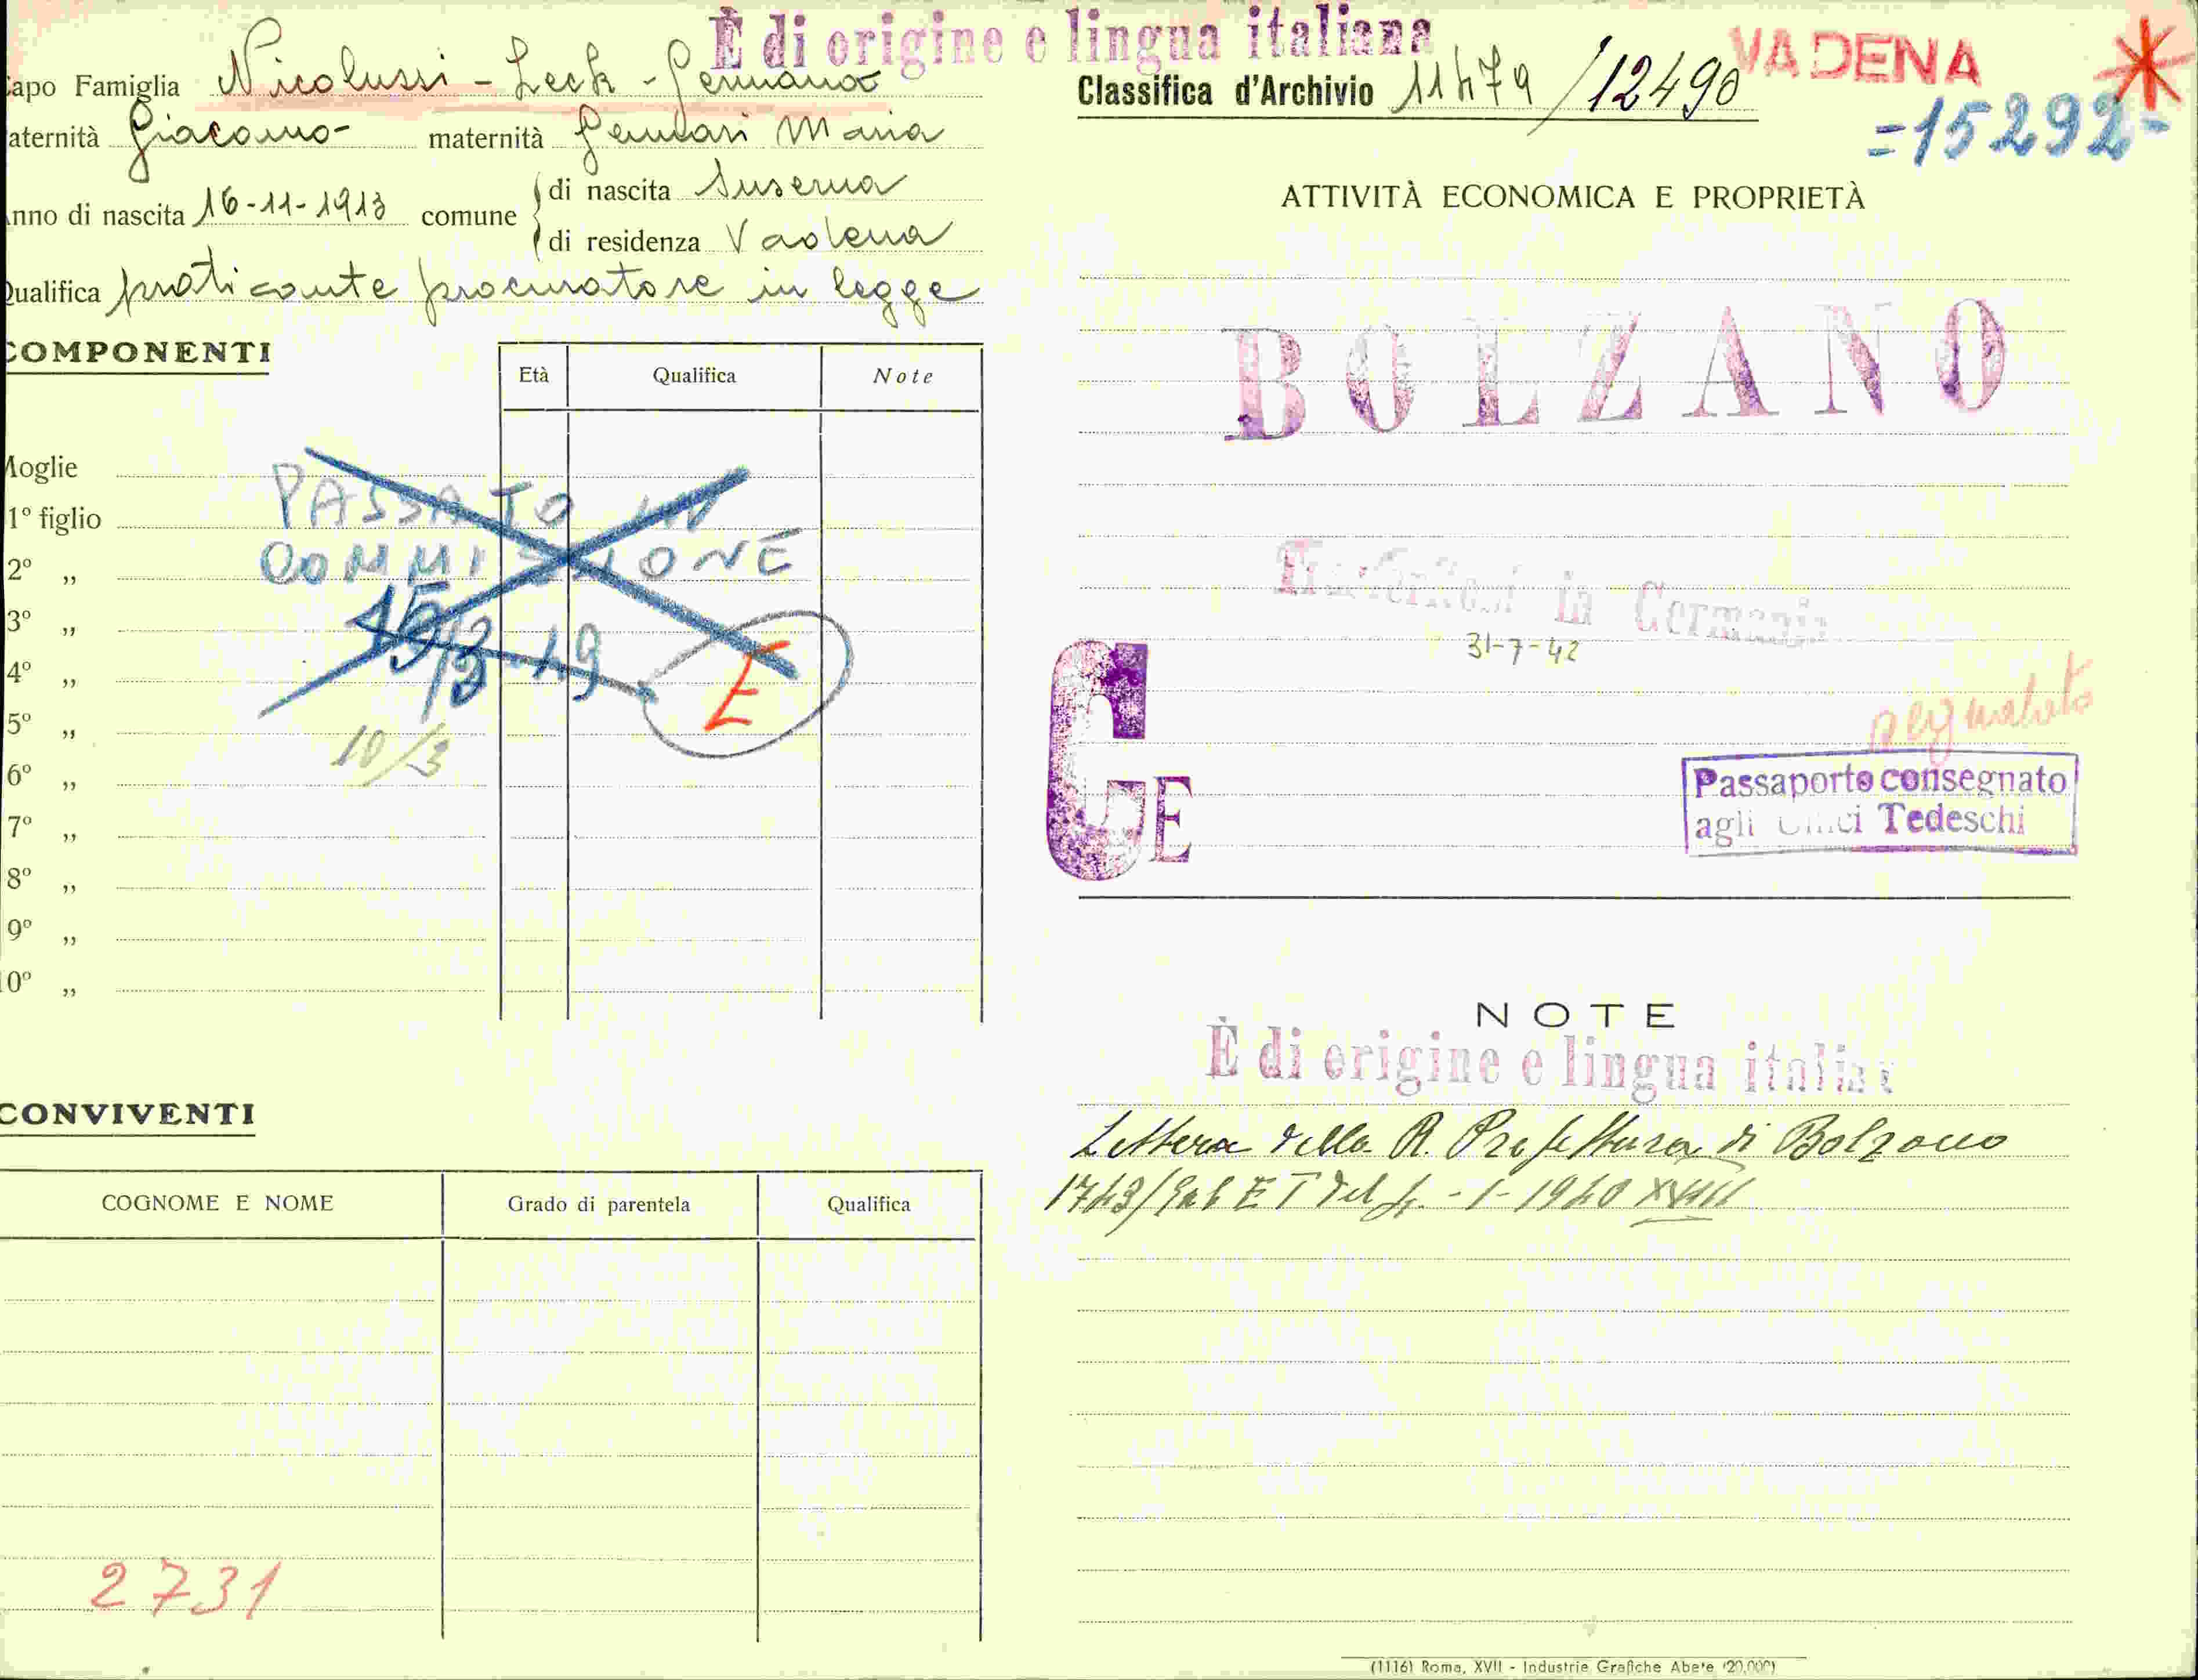 È di origine e lingua italiana
apo Famiglia Nicolussi - Leck - Germano
aternità Giacomo - maternità Gennari Maria
nno di nascita 16-11-1913 comune
di nascita Luserna
di residenza Vadena
Qualifica praticante procuratore in legge
COMPONENTI
Età Qualifica Note
Moglie
1° figlio
2° „
3° „
4° „
5° „
6° „
7° „
8° „
9° „
0° „
PASSATO IN
COMMISSIONE
E
10/3
CONVIVENTI
COGNOME E NOME Grado di parentela Qualifica
2731
Classifica d'Archivio 11479 /12490
VADENA
=15292-
ATTIVITÀ ECONOMICA E PROPRIETÀ
BOLZANO
Trasferitosi in Germania
31-7-42
CE
Passaporto consegnato
agli Uffici Tedeschi
NOTE
È di origine e lingua italia
Lettera della R. Prefettura di Bolzano
1743/Gab E T del 4 - 1 - 1940 XVIII
(1116) Roma, XVII - Industrie Grafiche Abete (20.000)